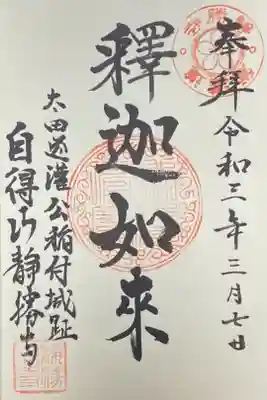 奉拝 令和三年三月七日
釋迦如来
太田道灌公稲付城趾
自得山静勝寺